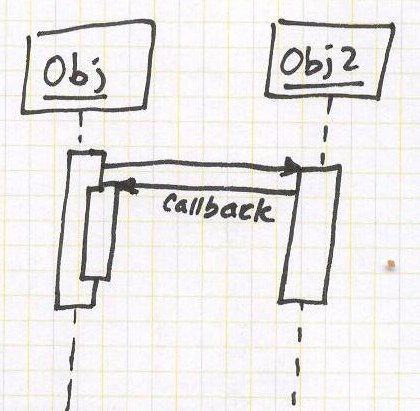 Obj
Obj2
callback